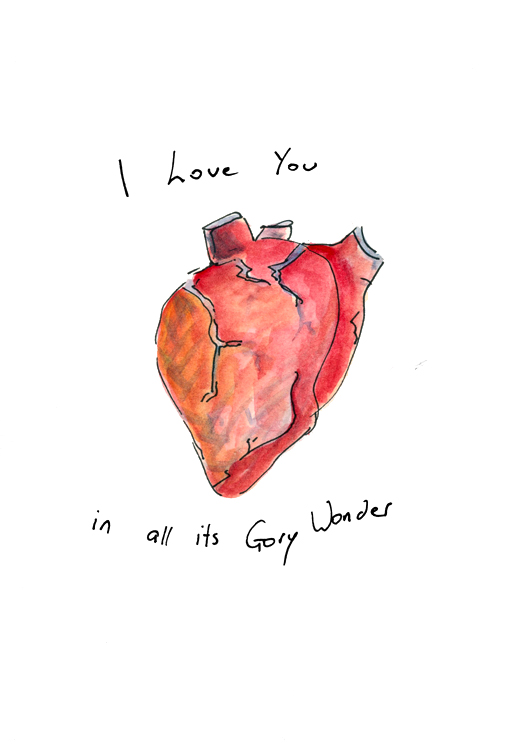 I Love You
in all its Gory Wonder